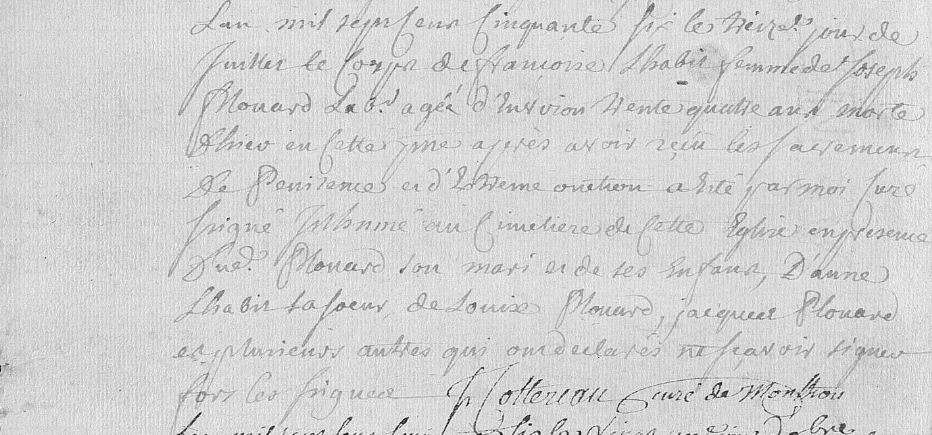 Lan mil sept cens Cinquante six le treize.e jour de
Juillet le Corps de françoise Chabit femme de Joseph
Plouard Lab.r agéé d'Environ trente quattre ans morte
d'hier en Cette p̃sse après avoir reçu les sacremens
De Penitence et d'Extreme onction a Esté par moi Curé
soussigné Inhumé au Cimetiere de Cette Eglise en presence
Dud.t Plouard son mari et de ses Enfans, D'anne
Chabit sa soeur, de Louis Plouard, jacques Plouard
et plusieurs autres qui ont declarés ne sçavoir signer
fors les signés J Cottereau Curé de Monthou